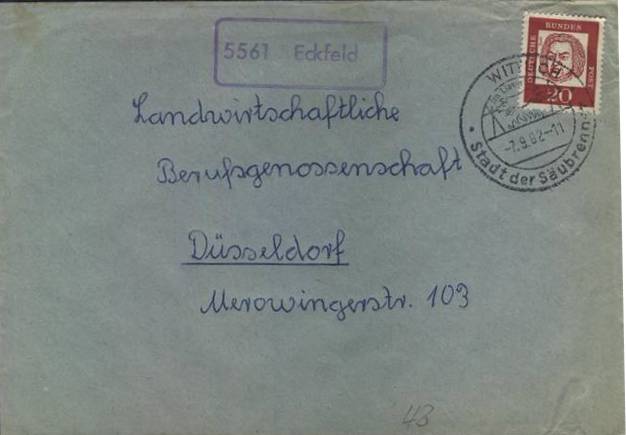 5561 Eckfeld
DEUTSCHE
BUNDES
POST
20
WITT
-7.9.62-11
Stadt der Säubrenn
Landwirtschaftliche
Berufsgenossenschaft
Düsseldorf
Merowingerstr. 103
43